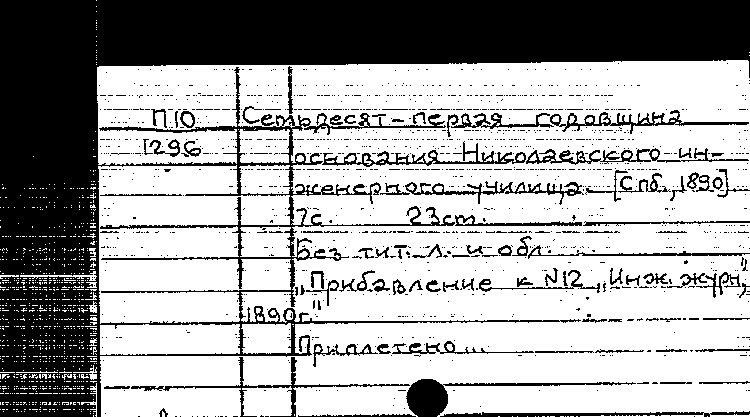 П10 Семьдесят-первая годовщина
1296
основания Николаевского ин-
женерного училища. [Спб., 1890]
7с. 23см.
Без тит. л. и обл.
„Прибавление к N12 „Инж. журн.",
1890г."
Приплетено...